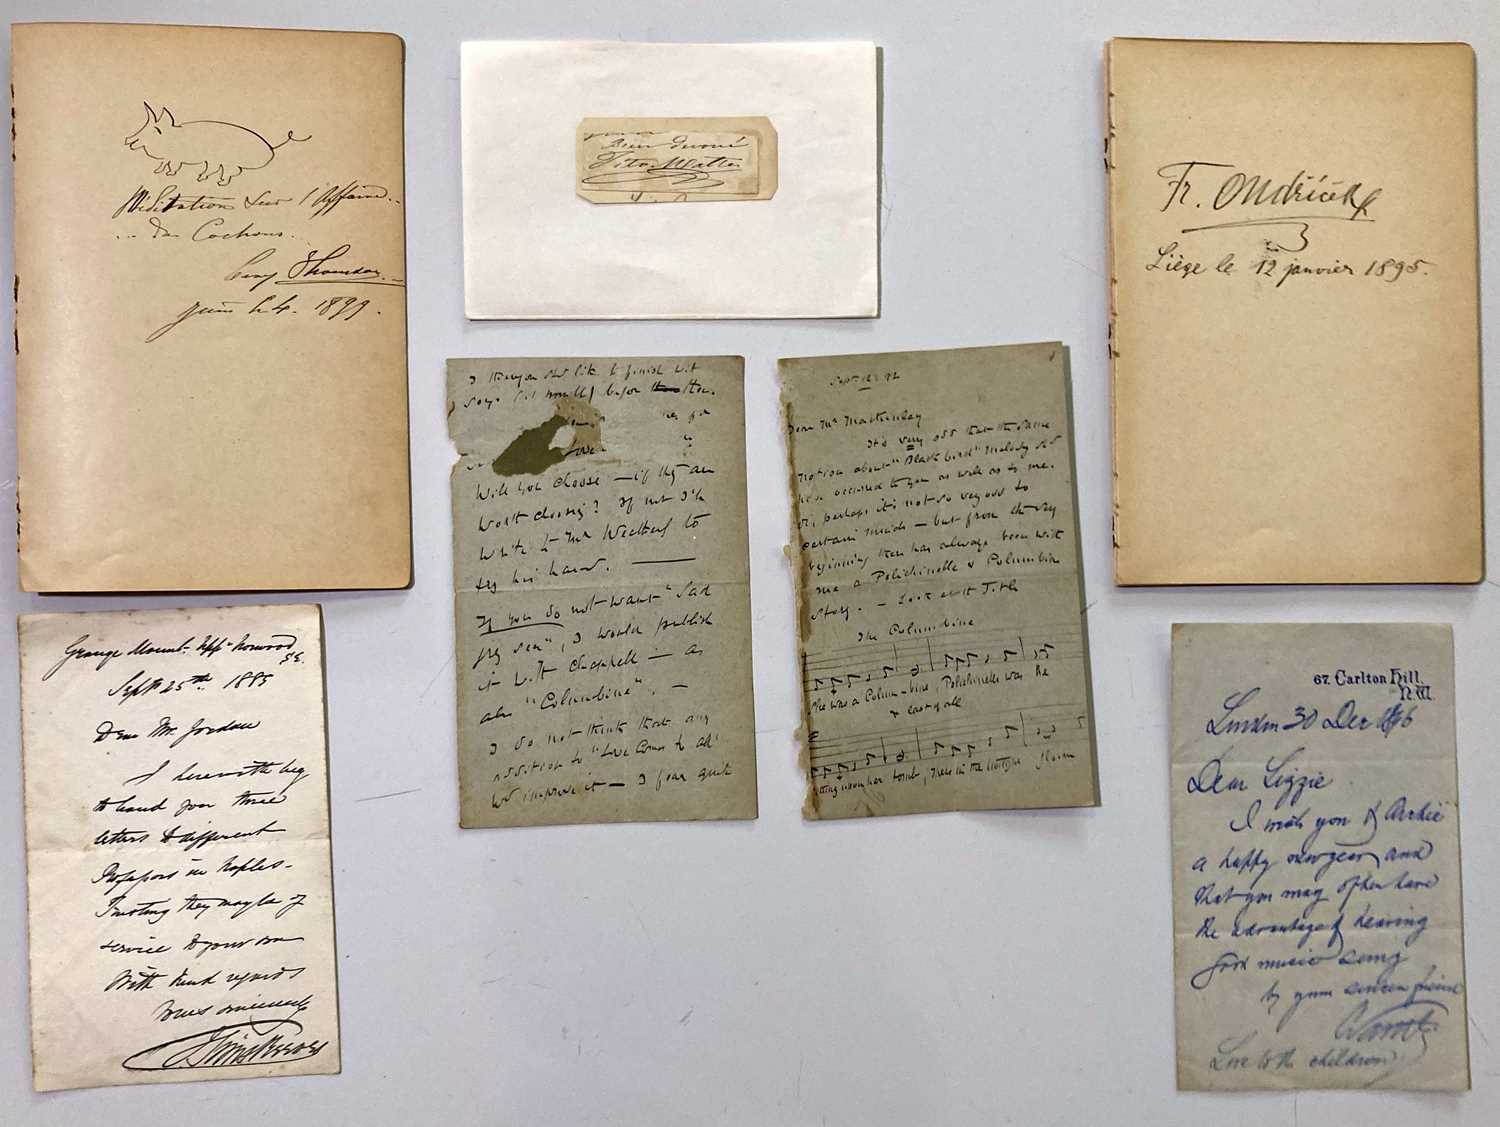 Méditation sur l'Affaire...
... Des Cochons.
César Thomson
juin 24. 1899.
Bien dévoué
Tito Mattei
Fr. Ondříček
Liège le 12 janvier 1895.
I like to finish
says before the
Love
Will you choose — if they are
worth choosing? If not I'll
write to Mr Weatherly to
try his hand.
If you do not want "Sad
grey sea", I would publish
it with Chappell — as
also "Columbine". —
I do not think that any
addition to "Love comes to all"
wd improve it — I fear quite
Sept 12 92
Dear Mr Mackinlay
It's very odd that the same
notion about "Black bird" melody shd
have occurred to you as well as to me.
Or, perhaps it's not so very odd to
certain minds — but from the very
beginning there has always been with
me a Polichinelle & Columbine
story. — Look at it Title
The Columbine
She was a Colum-bine, Polichinelle was he
& east of all
Sitting upon her tomb, There in the
Grange Mount. Uppr Norwood
S.E.
Septr 25th 1885
Dear Mr. Jordan
I herewith beg
to hand you three
letters to different
Professors in Naples -
Trusting they may be of
service to your son
With kind regards
Yours sincerely
J Sims Reeves
67. Carlton Hill.
N.W.
London 30 Dec
Dear Lizzie
I wish you & Archie
a happy new year and
that you may often have
the advantage of hearing
good music sung
by your sincere friend
Love to the children